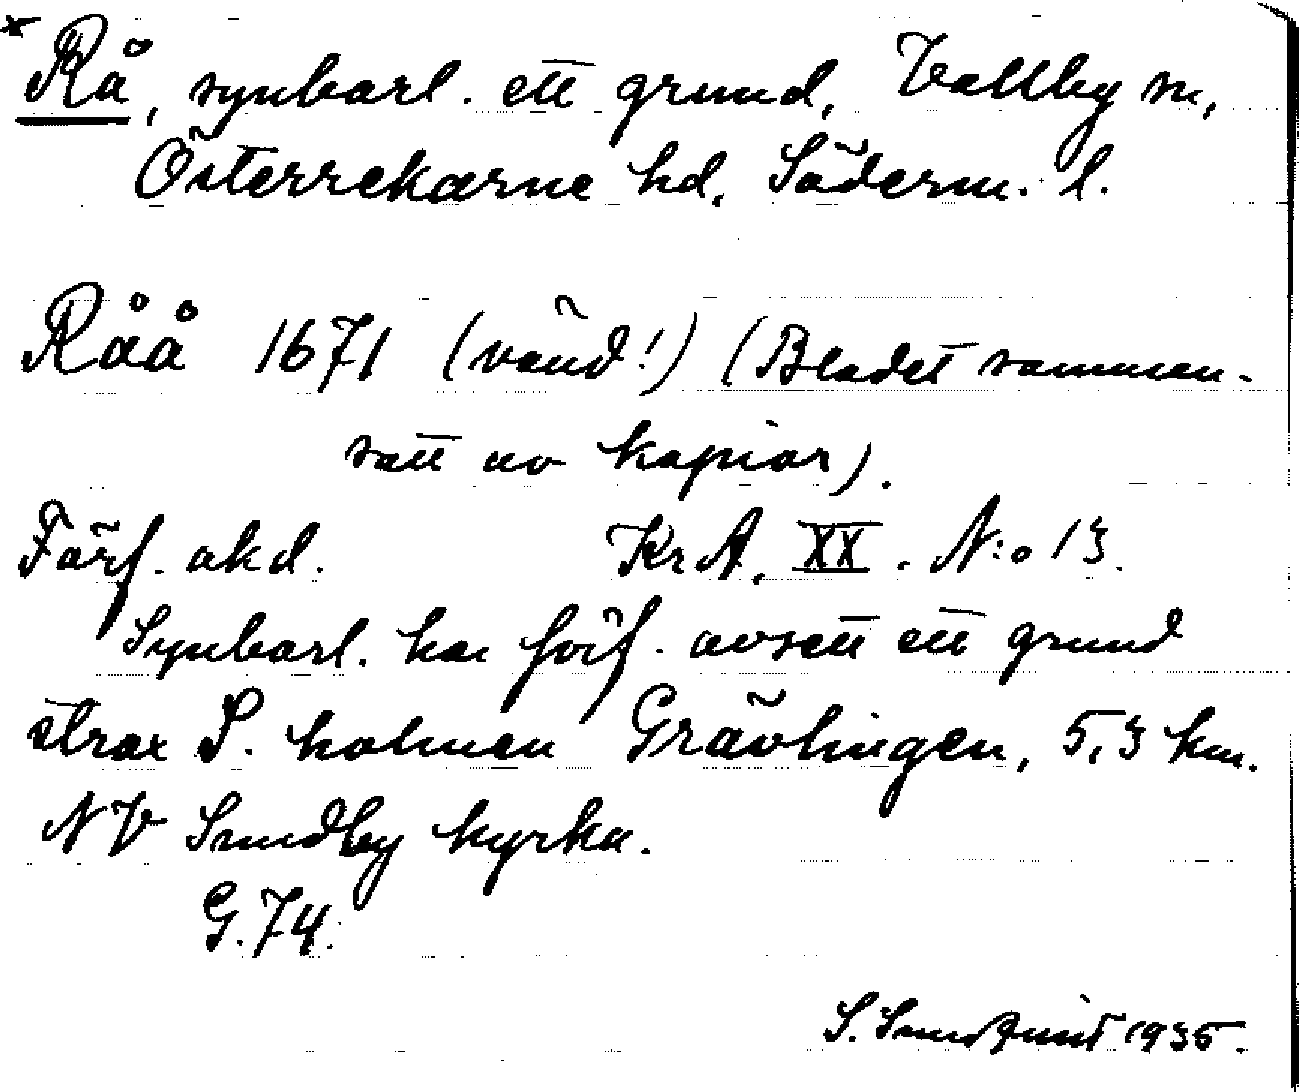 * Rå, synbarl. ett grund, Vallby sn,
Österrekarne hd, Söderm. l.
Råå 1671 (vänd!) (Bladet samman-
satt av kopior).
Förf. okd. KrA, XX. N:o 13.
Synbarl. har förf. avsett ett grund
strax S. holmen Grävlingen, 5,3 km.
NV Sundby kyrka.
G.74.
S. Sundquist 1935.